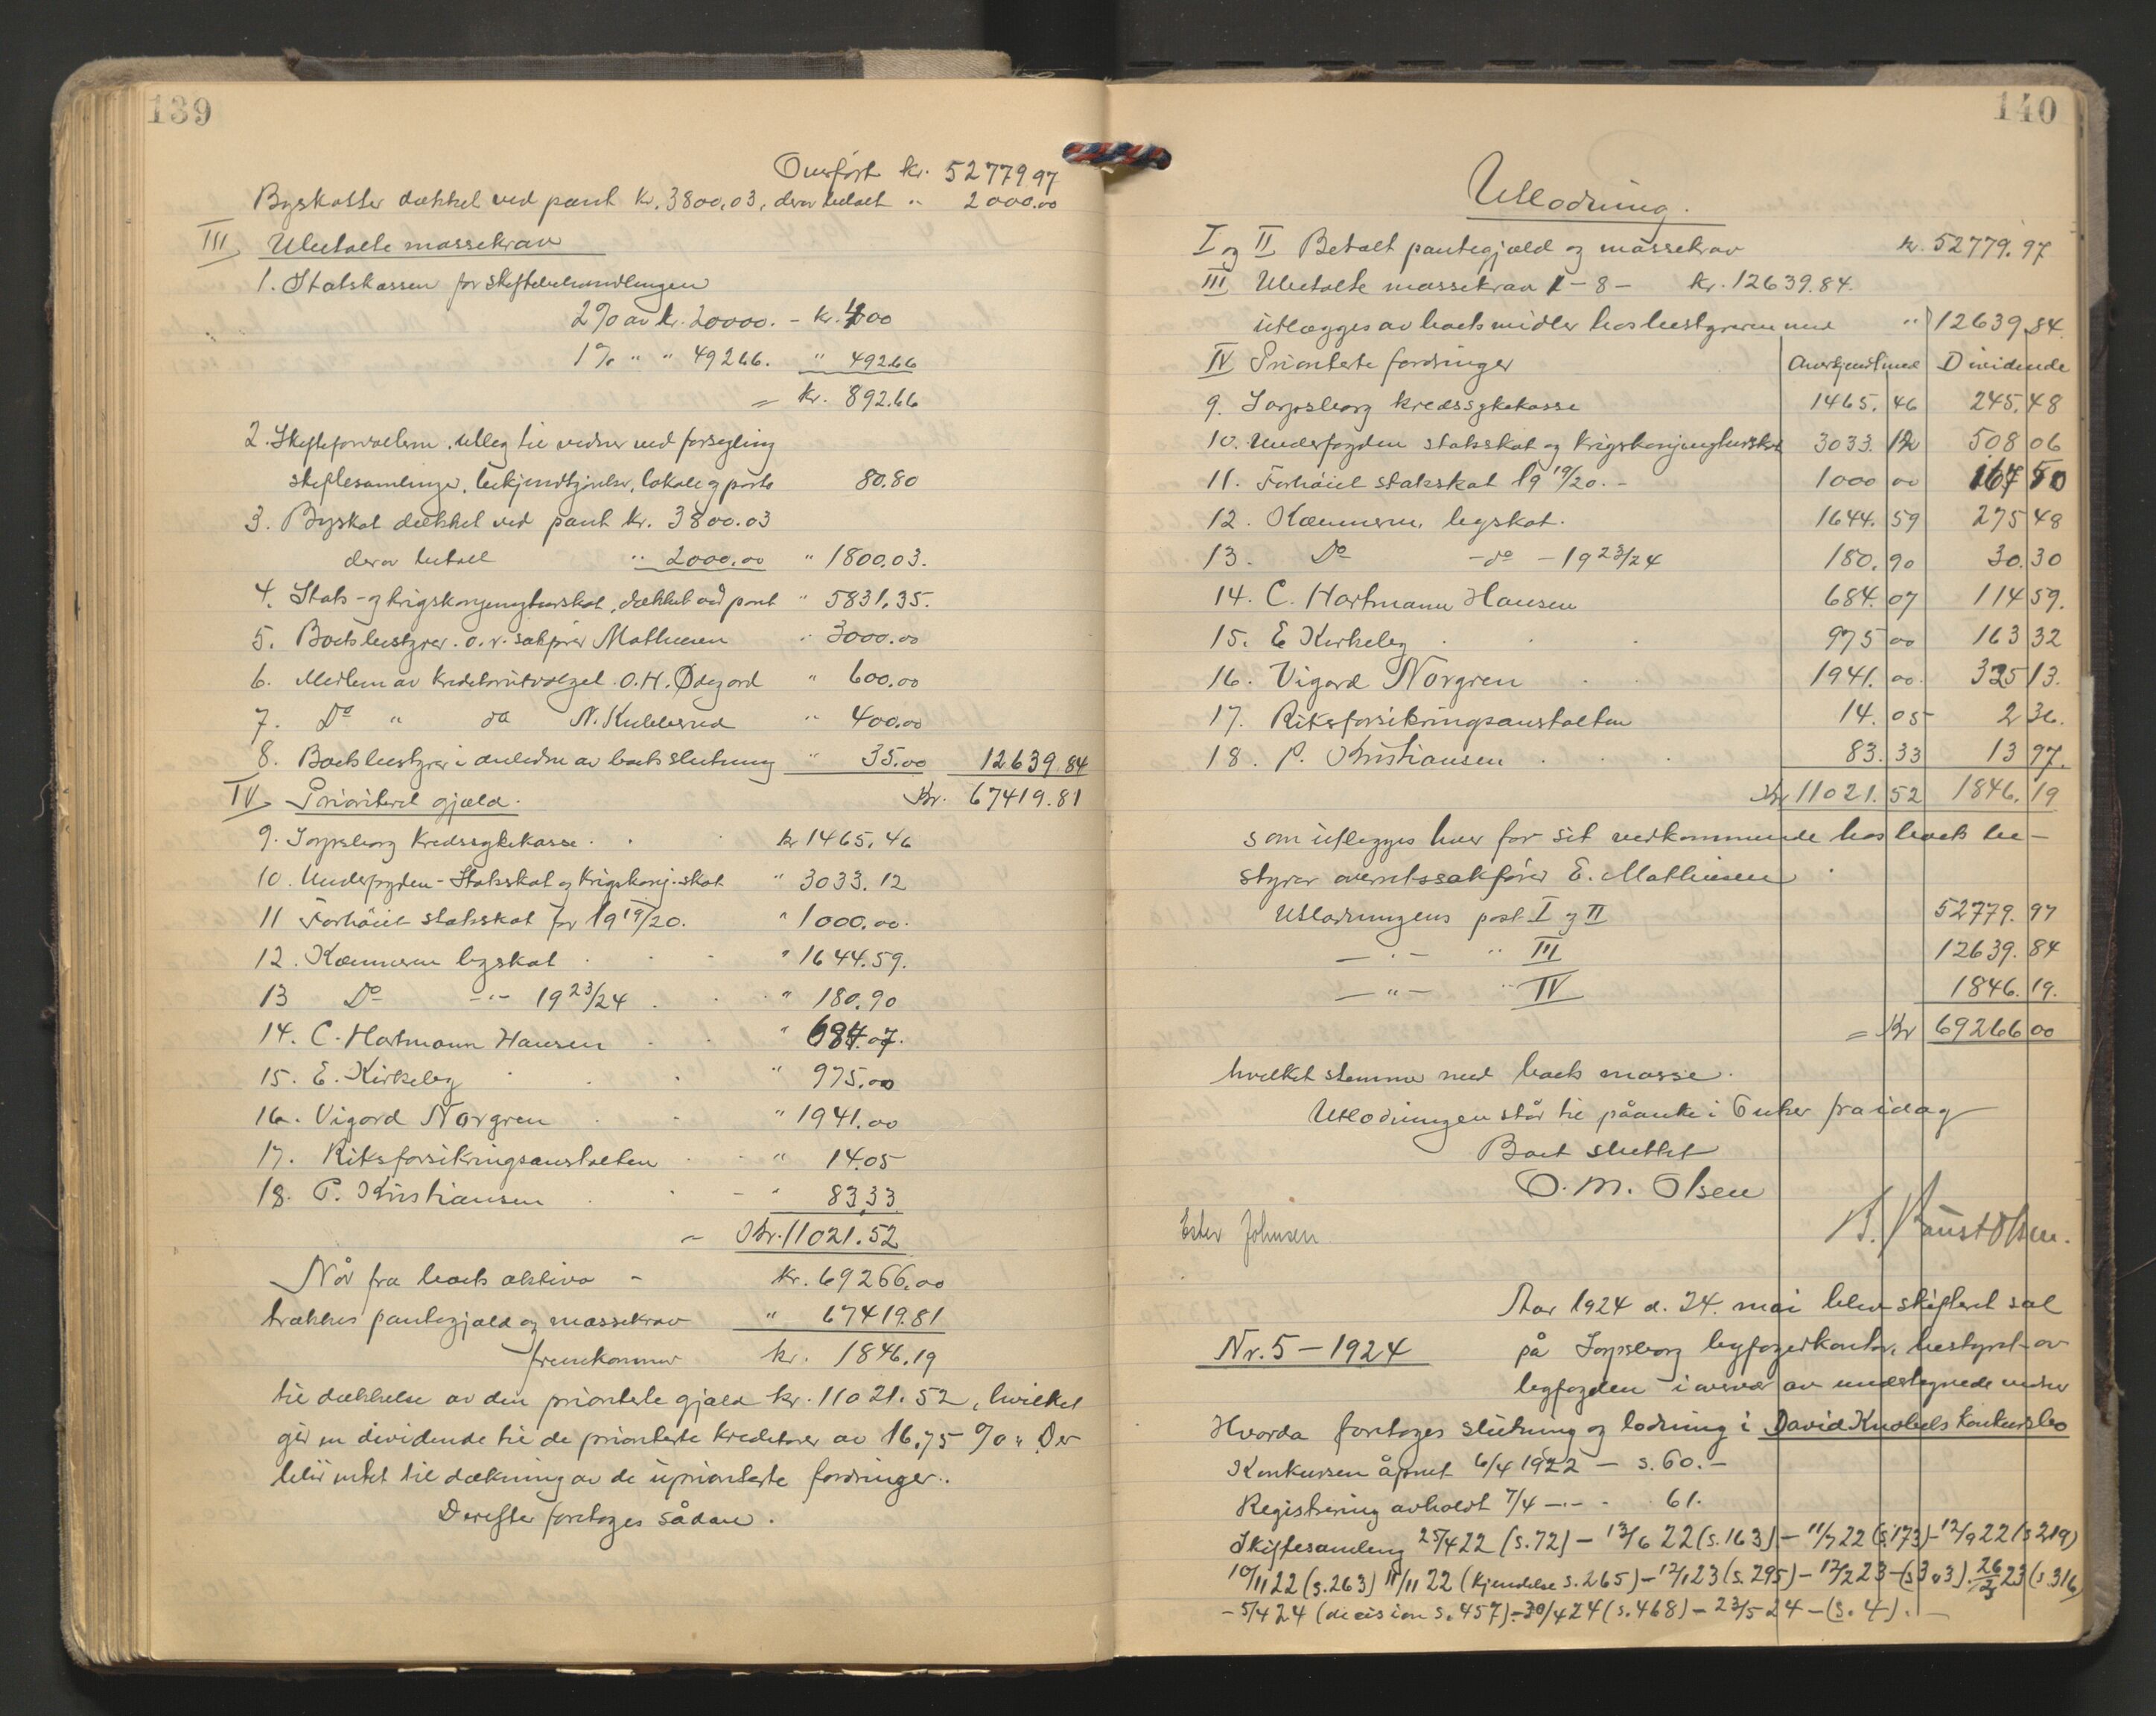 139
Overført kr. 52779.97
Byskatter dækket ved pant kr. 3800,03, derav betalt " 2000.00
III Ubetalte massekrav
1. Statskassen for skiftebehandlingen
2% av kr. 20000. - kr. 400
1% " " 49266. " 492.66
= kr. 892.66
2. Skifteforvalteren, utlæg til vidner ved forsegling
skiftesamlinger, bekjendtgjørelser, lokale og porto 80.80
3. Byskat dækket ved pant kr. 3800.03
derav betalt " 2000.00 " 1800.03.
4. Stats- og krigskonjunkturskat, dækket ved pant " 5831,35.
5. Boets bestyrer o.r. sakfører Mathiesen " 3000.00
6. Medlem av kreditorutvalget O.H. Ødegård " 600.00
7. Do " do N. Kullerud " 400.00
8. Boets bestyrer i anledn av boets slutning " 35.00 12639.84
IV Prioritert gjæld. Kr. 67419.81
9. Sarpsborg Kredssykekasse . . kr 1465,46
10. Underfogden - Statsskat og krigskonj.skat " 3033.12
11 Forhöiet statsskat for 1919/20. " 1000.00.
12. Kæmneren byskat . . - " 1644.59.
13 Do -"- 1923/24 . . " 180.90
14. C. Hartmann Hansen . . " 684.07.
15. E. Kirkeby . . . " 975.00
16. Vigard Norgren . . " 1941.00
17. Riksforsikringsanstalten . . " 14.05
18. P. Kristiansen . . - " 83.33
= Kr. 11021.52
Når fra boets aktiva - kr. 69266.00
trækkes pantegjæld og massekrav " 67419.81
fremkommer kr. 1846.19
til dækkelse av den prioriterte gjæld kr. 11021.52, hvilket
gir en dividende til de prioriterte kreditorer av 16,75 %. Der
blir intet til dækning av de uprioriterte fordringer.
Derefter foretoges sådan.
140
Utlodning.
I og II Betalt pantegjæld og massekrav kr. 52779.97
III Ubetalte massekrav 1-8- kr. 12639.84.
utlægges av boets midler hos bestyreren med " 12639.84
IV Prioriterte fordringer Anerkjendt med Dividende
9. Sarpsborg kredssykekasse 1465.46 245.48
10. Underfogden statsskat og krigskonjunkturskat 3033.12 508 06
11. Forhöiet statsskat 1919/20. - 1000 00 167 50
12. Kæmneren, byskat. 1644.59 275 48
13. Do -do- 1923/24 180.90 30.30
14. C. Hartmann Hansen 684.07 114 59.
15. E Kirkeby . . . 975 00 163 32
16. Vigard Norgren . . 1941.00. 325 13.
17. Riksforsikringsanstalten 14.05 2 36.
18. P. Kristiansen . . . 83.33 13 97.
Kr 11021.52 1846.19
som utlegges hver for sit vedkommende hos boets be-
styrer overretssakfører E. Mathiesen.
Utlodningens post I og II 52779.97
- " - " III 12639.84
- " - " IV 1846.19.
= Kr 69266 00
hvilket stemmer med boets masse.
Utlodningen står til påanke i 6 uker fra idag
Boet sluttet
O. M. Olsen
Ester Johnsen
Aar 1924 d. 24. mai blev skifteret sat
Nr. 5 - 1924
på Sarpsborg byfogedkontor, bestyret av
byfogden i overvær av undertegnede vidner
Hvorda foretoges slutning og lodning i David Knobels konkursbo
Konkursen åpnet 6/4 1922 - s. 60. -
Registrering avholdt 7/4 -"- 61.
Skiftesamling 25/4 22 (s. 72) - 13/6 22 (s. 163) - 11/7 22 (s. 173) - 12/9 22 (s 219)
10/11 22 (s. 263) 11/11 22 (kjendelse s. 265) - 12/1 23 (s. 295) - 12/2 23 - (s 303). 26/3 23 (s. 316)
- 5/4 24 (decision s. 457) - 30/4 24 (s. 468) - 23/5 24 - (s. 4). -